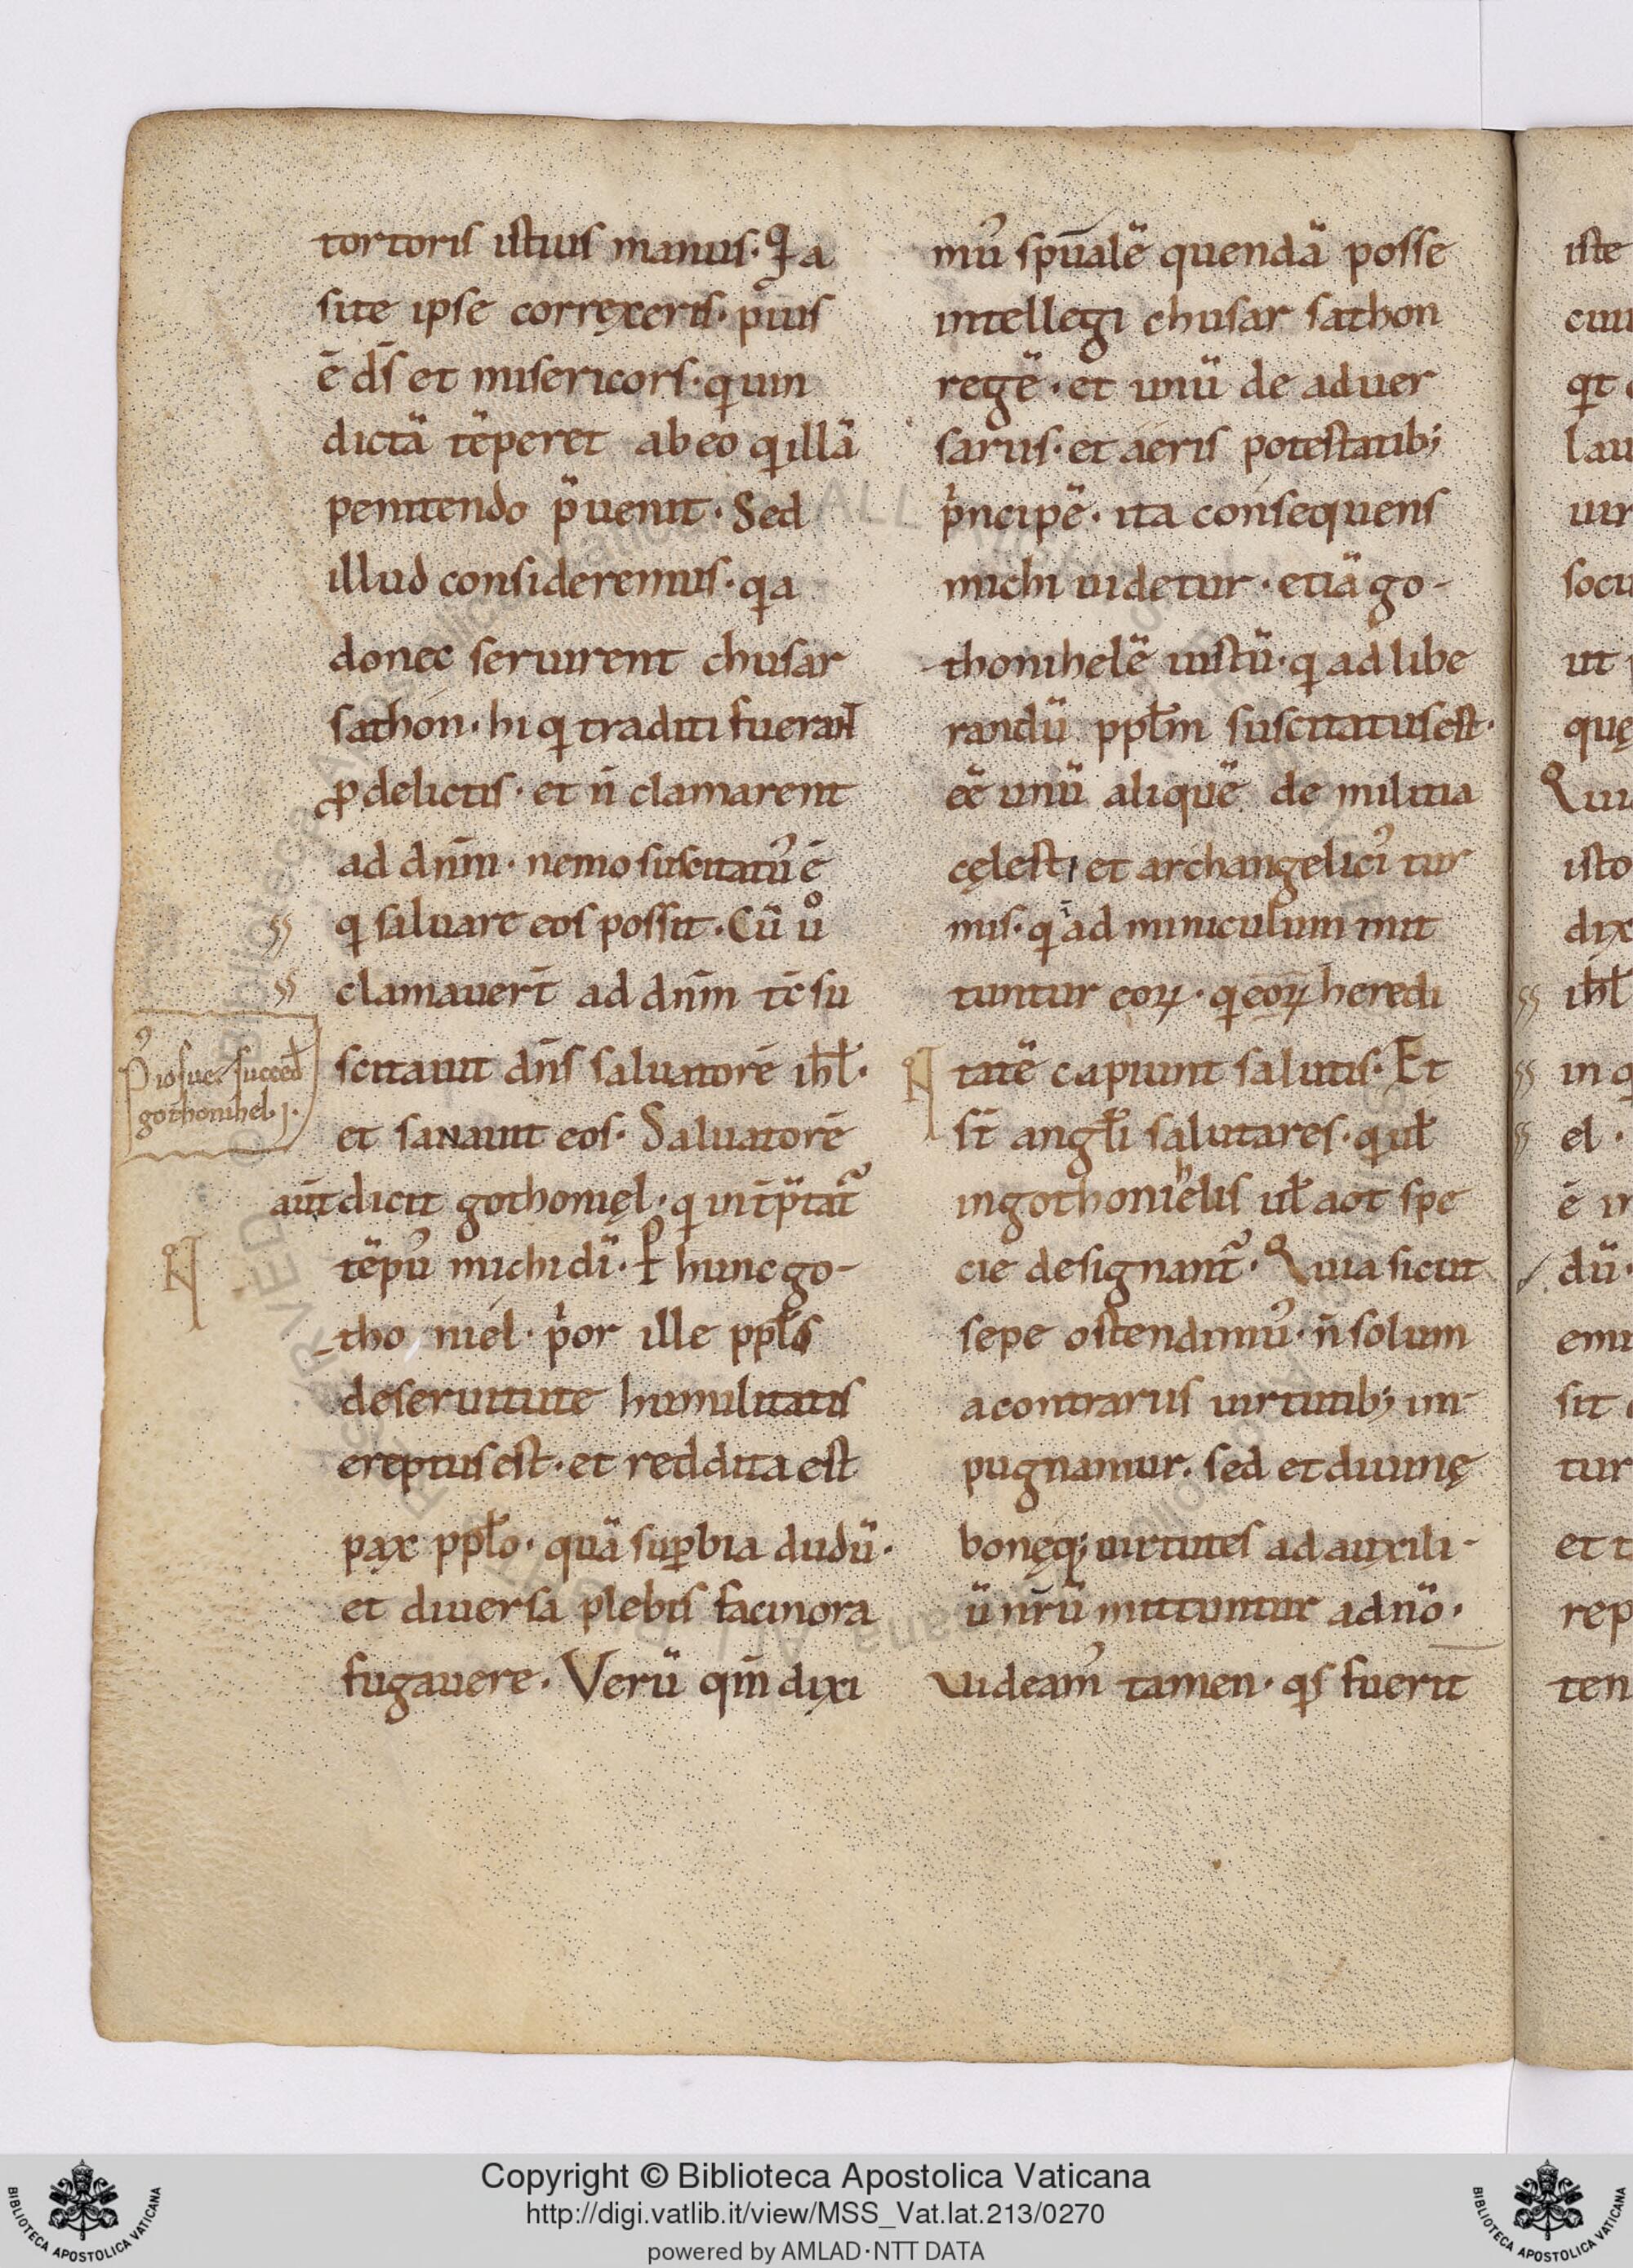 tortoris istius manus. Qia
si te ipse correxeris. pius
ē ds̄ et misericors. qui uin
dictā tēperet ab eo qi illā
penitendo p̄uenit. Sed
illud consideremus. qa
donec seruirent chusar
sathon. hi qi traditi fuerant
ꝓ delictis. et n̄ clamarent
ad dnm̄. nemo suscitatuꝰ ē
qi saluare eos possit. Cū uͦ
clamauerī ad dnm̄ tc̄ su
scitauit dns̄ saluatorē ihl̄.
et sanauit eos. Saluatorē
aut̄ dicit gothonięl. qi int̄p̄tat᷑
tēpuꝰ michi dī. P hunc go-
tho niel. p̍or ille ppl̄s
de seruitute humilitatis
ereptus est. et reddita est
pax ppl̄o. quā suꝑbia dudū.
et diuersa plebis facinora
fugauere. Verū qm̄ dixi
muꝰ spūalē quendā posse
intellegi chusar sathon
regē. et unū de aduer
sariis. et aeris potestatib;
p̍ncipē. ita consequens
michi uidetur. etiā go-
thonihelē iustū. qi ad libe
randū ppl̄m suscitatus est.
eē unū aliquē de militia
cęlesti et archangeliciꝰ tur
mis. qi ad miniculum mit
tuntur eoꝝ. qi eoꝝ heredi
tatē capiunt salutis. Et
st̄ angl̄i salutares. qi ul̄
in gothonihelis ul̄ aot spe
cie designant᷑. Quia sicut
sepe ostendimuꝰ. n̄ solum
a contrariis uirtutib; im-
pugnamur. sed et diuinę
bonęq; uirtutes ad auxili-
ū nr̄ū mittuntur a dnō.
Uideamꝰ tamen. qis fuerit
Pꝰ iosue succed̄
gothonihel. j.
iste
ut
dix
ihl̄
in q
el.
dū.
sit
tur
et t
rep
ten
Copyright © Biblioteca Apostolica Vaticana
http://digi.vatlib.it/view/MSS_Vat.lat.213/0270
powered by AMLAD·NTT DATA
BIBLIOTECA APOSTOLICA VATICANA
BIBLIOTECA APOSTOLICA VATICANA